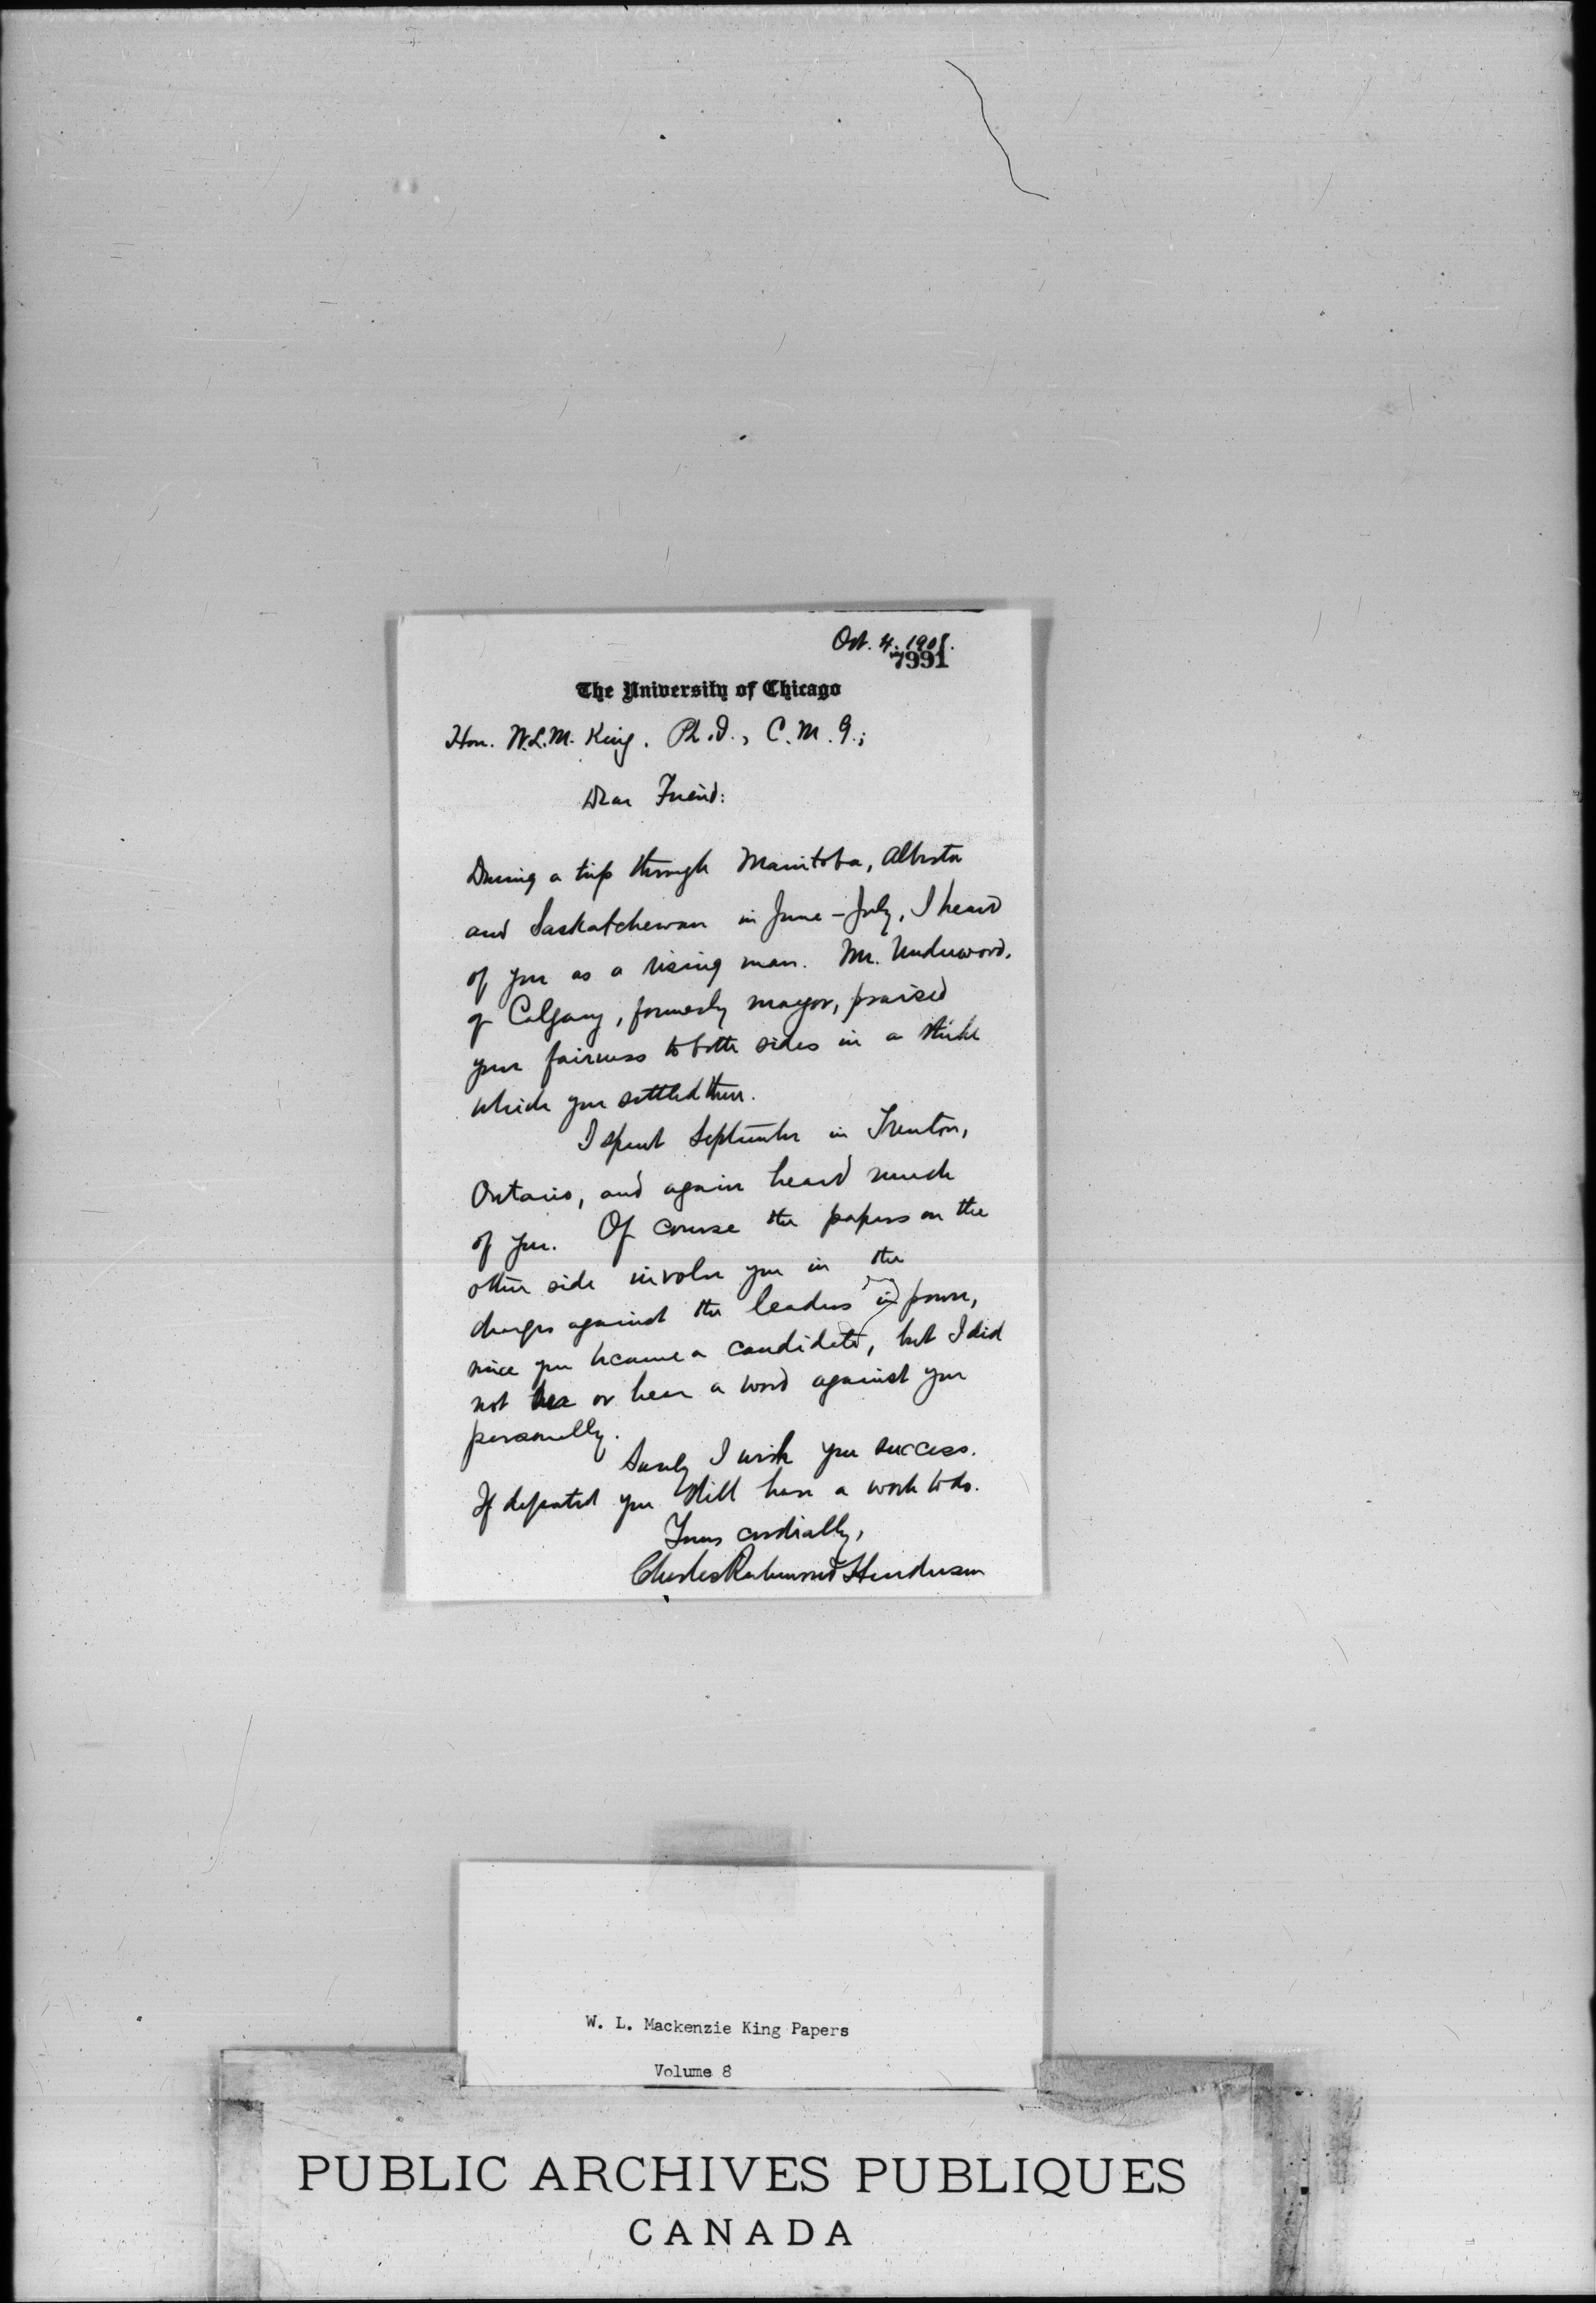 Oct. 4. 1908.
7991
The University of Chicago
Hon. W.L.M. King. Ph.D., C.M.G.;
Dear Friend:
During a trip through Manitoba, Alberta
and Saskatchewan in June-July, I heard
of you as a rising man. Mr. Underwood,
of Calgary, formerly mayor, praised
your fairness to both sides in a strike
which you settled there.
I spent September in Trenton,
Ontario, and again heard much
of you. Of course the papers on the
other side involve you in the
charges against the leaders in power,
since you became a candidate, but I did
not see or hear a word against you
personally.
Surely I wish you success.
If defeated you still have a work to do.
Yours cordially,
Charles Richmond Henderson
W. L. Mackenzie King Papers
Volume 8
PUBLIC ARCHIVES PUBLIQUES
CANADA